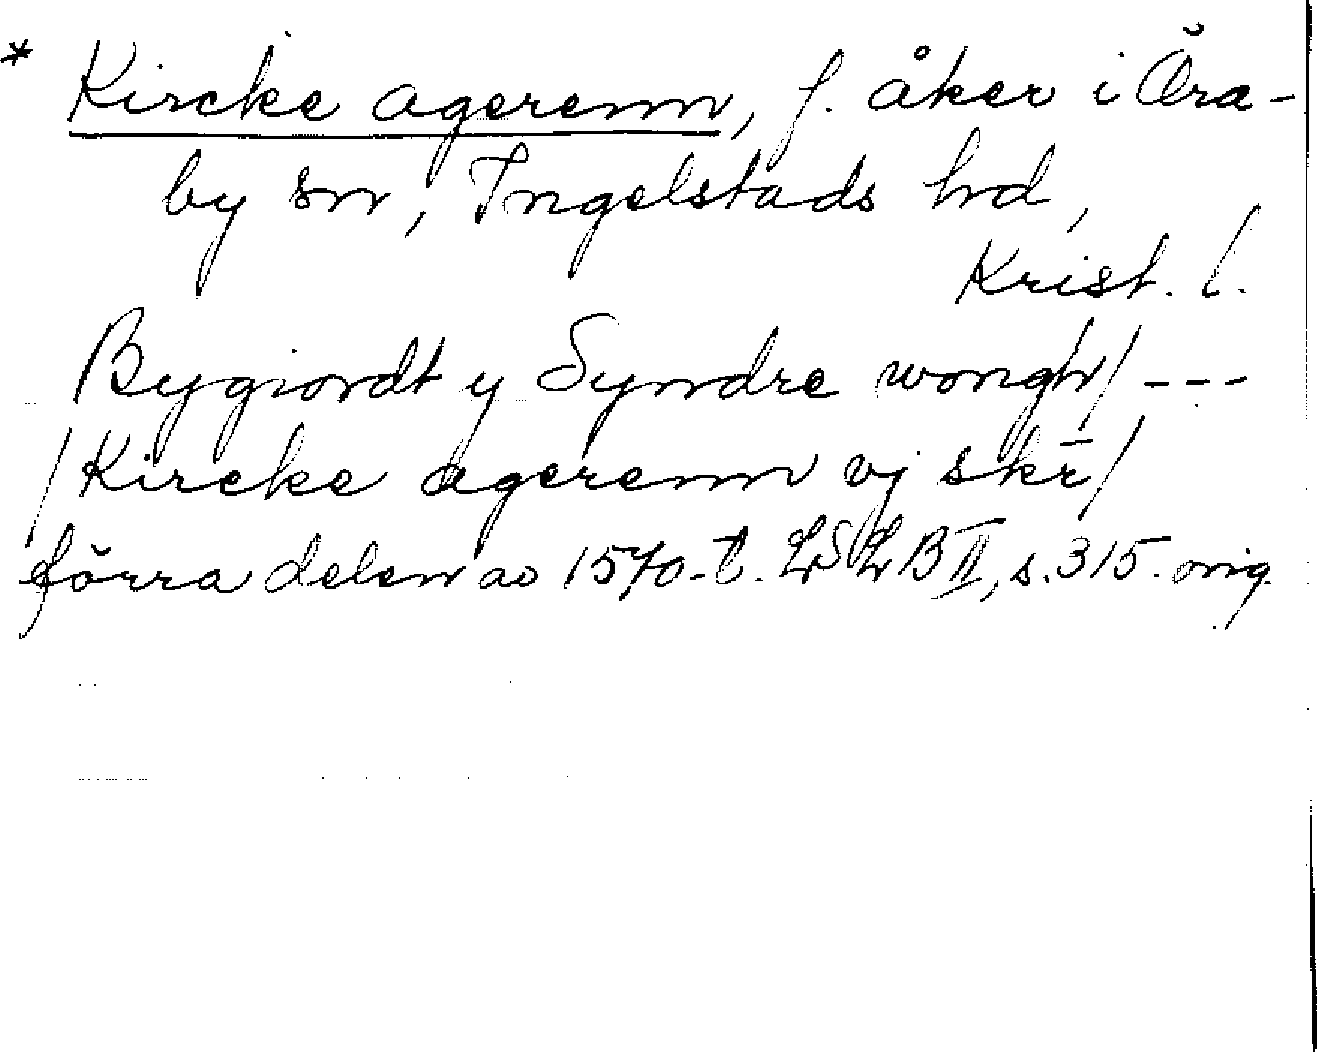 * Kircke agerenn, f. åker i Övra-
by sn, Ingelstads hd,
Krist. l.
Bygiordt y Syndre wongh/ ---
/Kircke agerenn vj skr̄/
förra delen av 1570-t. LSLB II, s. 315. orig.